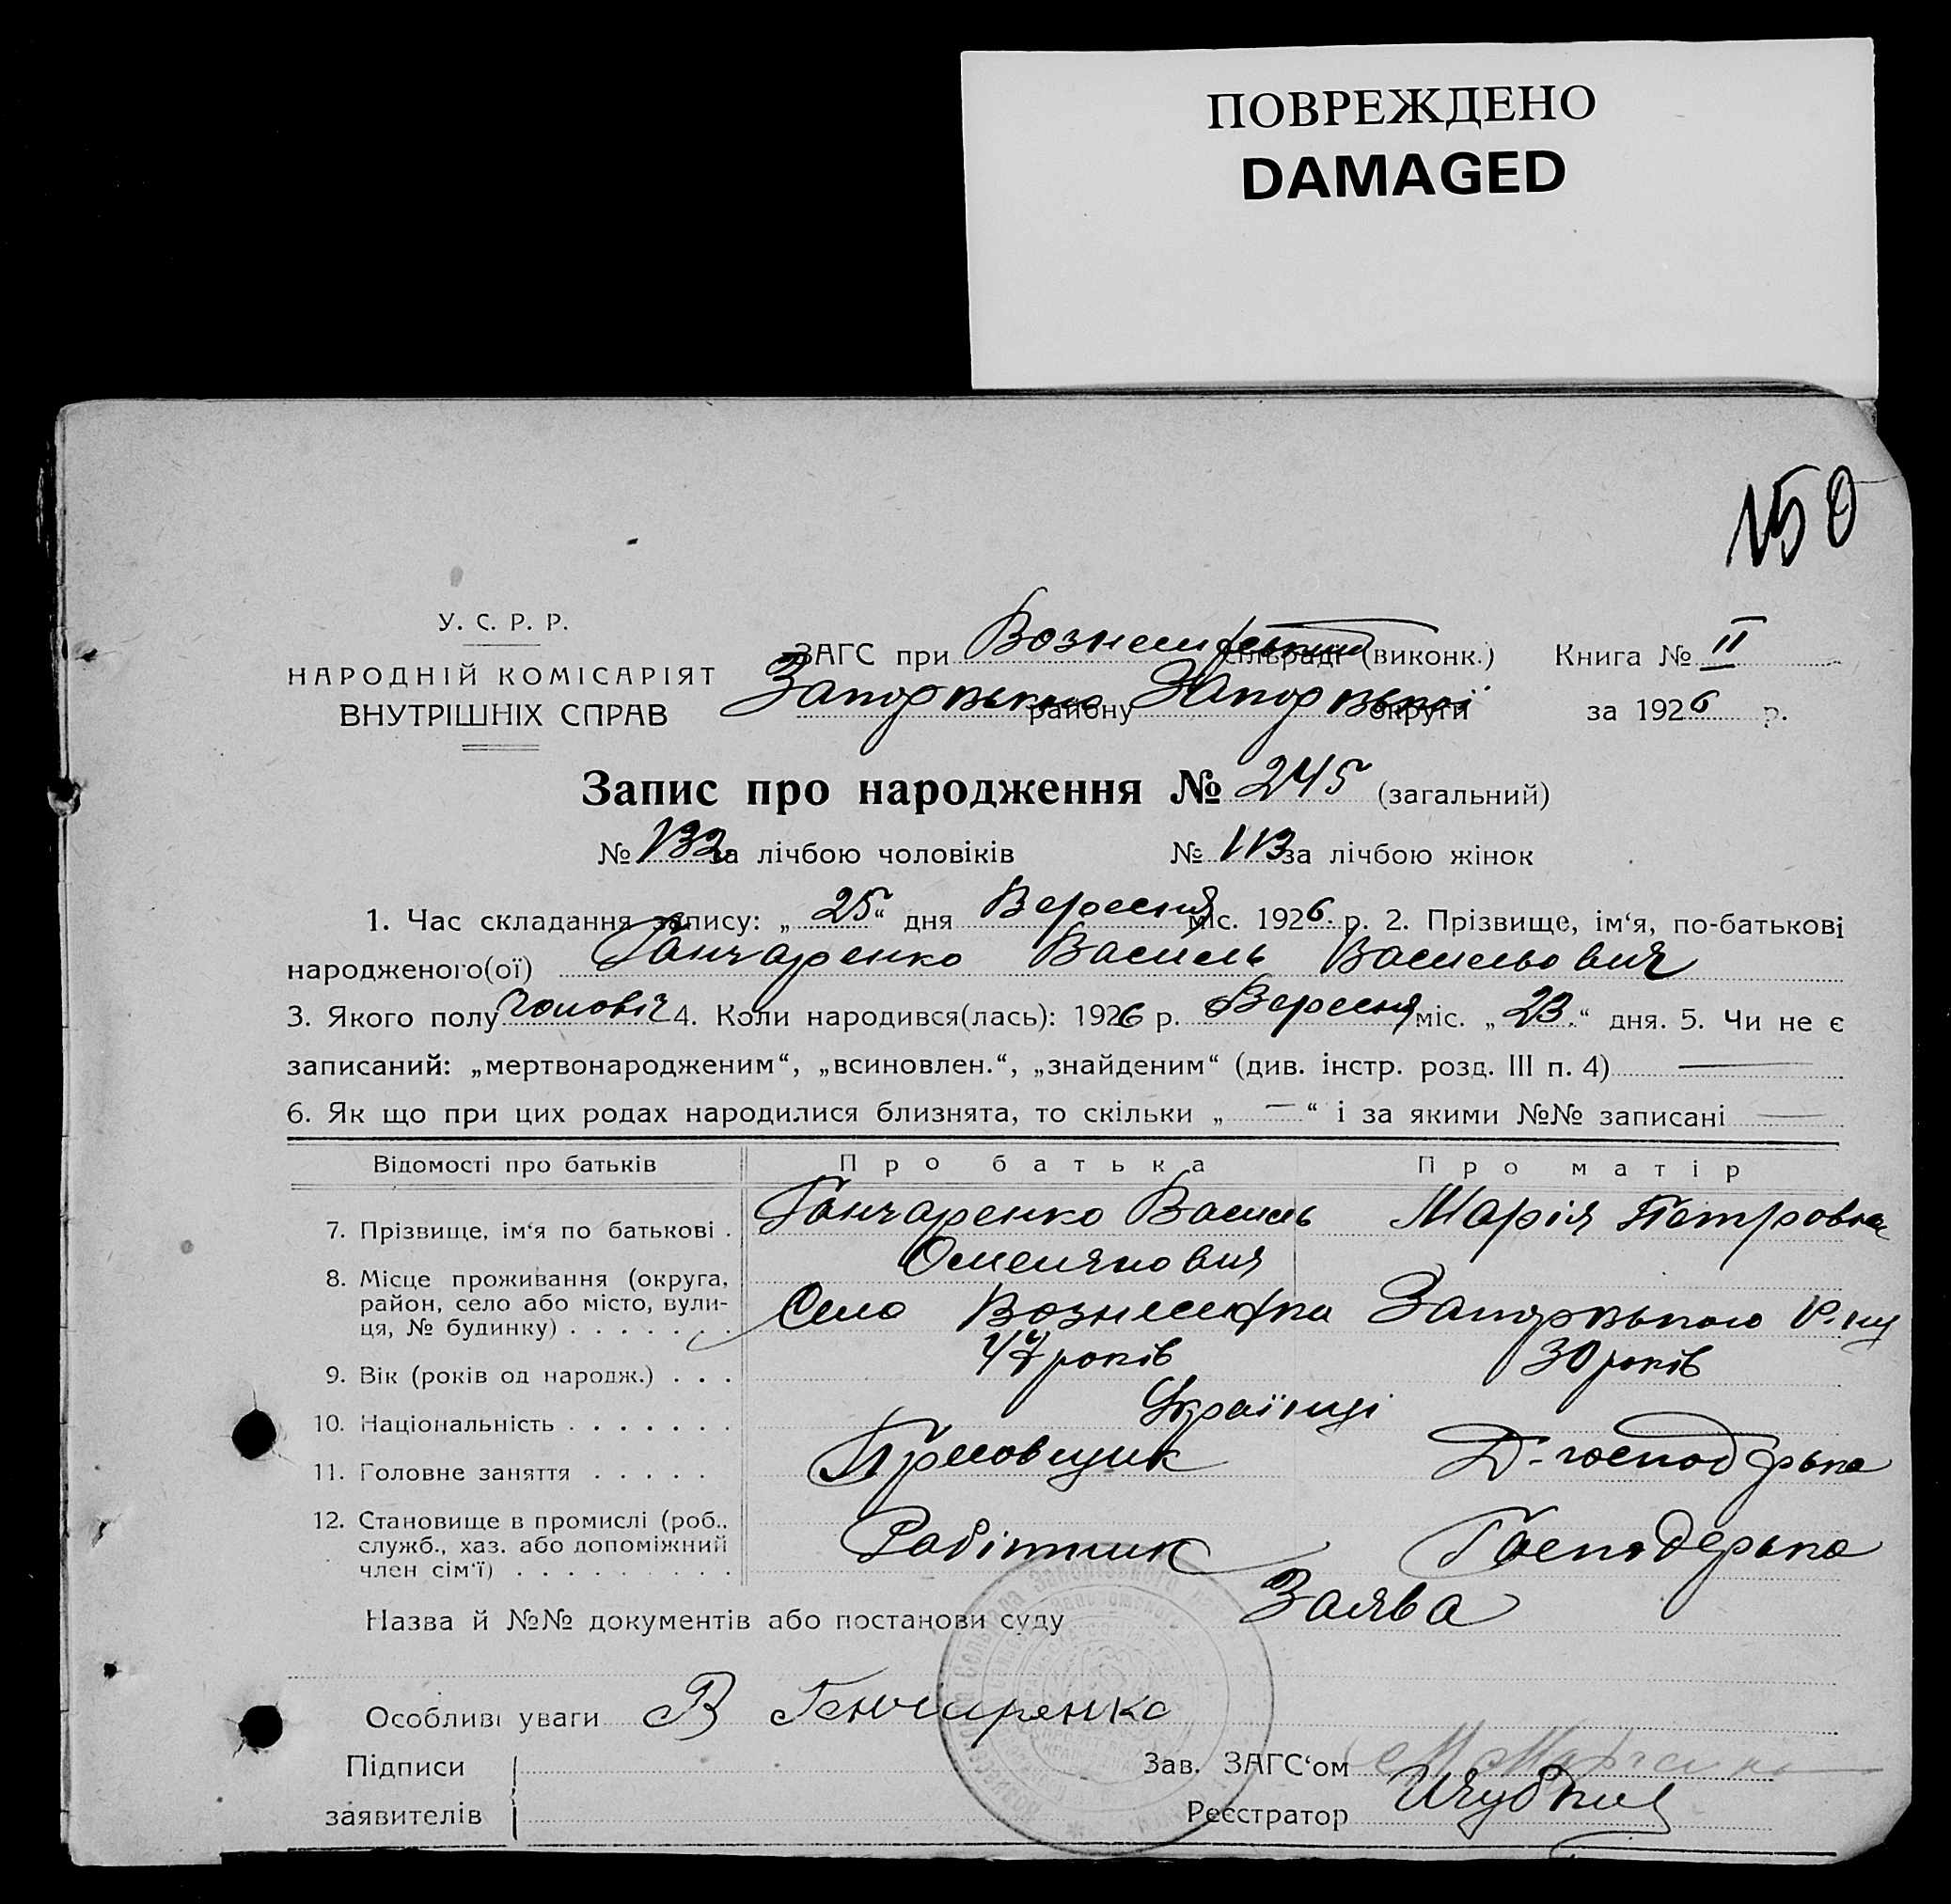 ПОВРЕЖДЕНО
DAMAGED
150
У. С. Р. Р.
НАРОДНІЙ КОМІСАРІЯТ
ВНУТРІШНІХ СПРАВ
ЗАГС при Вознесенській сільраді (виконк.) Книга № II
Запорізького району Запорізької округи за 1926 р.
Запис про народження № 245 (загальний)
№ 132 за лічбою чоловіків № 113 за лічбою жінок
1. Час складання запису: „25“ дня Вересня міс. 1926 р. 2. Прізвище, ім‘я, по-батькові
народженого(ої) Гончаренко Василь Васильович
3. Якого полу чоловіч 4. Коли народився(лась): 1926 р. Вересня міс. „23“ дня. 5. Чи не є
записаний: „мертвонародженим“, „всиновлен.“, „знайденим“ (див. інстр. розд. III п. 4) —
6. Як що при цих родах народилися близнята, то скільки „—“ і за якими №№ записані —
Відомості про батьків Про батька Про матір
7. Прізвище, ім‘я по батькові . Гончаренко Василь Омелянович Марія Петровна
8. Місце проживання (округа,
район, село або місто, вули-
ця, № будинку) . . . . . . . Село Вознесенка Запорізького
9. Вік (років од народж.) . . . 47 років 30 років
10. Національність . . . . . . . Українці
11. Головне заняття . . . . . Пресовщик Д-господарька
12. Становище в промислі (роб.,
служб., хаз. або допоміжний
член сім‘ї) . . . . . . . . . Робітник Господерька
Назва й №№ документів або постанови суду Заява
Особливі уваги В Гончаренко
Підписи
заявителів
Зав. ЗАГС‘ом
Реєстратор